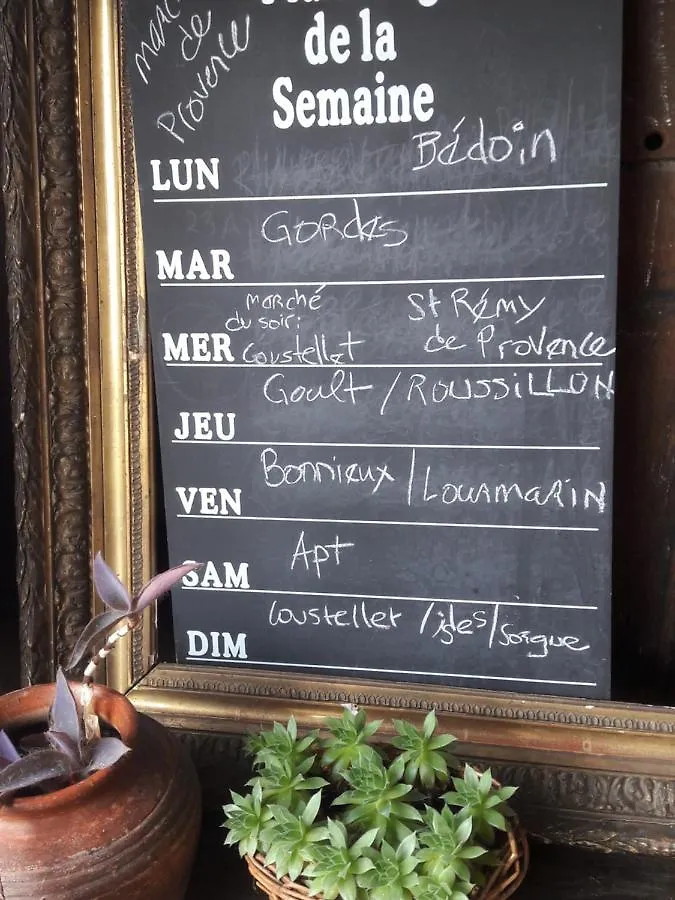 marché
de
Provence
de la
Semaine
LUN Bédoin
MAR Gordes
marché
du soir:
MER Coustellet St Rémy
de Provence
JEU Goult / ROUSSILLON
VEN Bonnieux | Lourmarin
SAM Apt
DIM Coustellet / isles / Sorgue